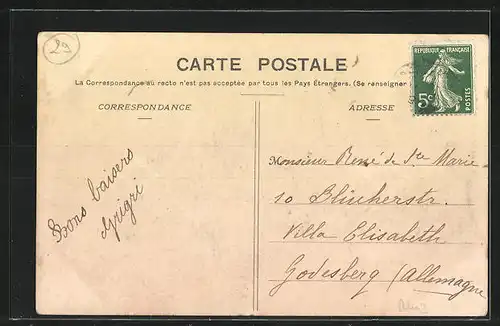 29
CARTE POSTALE
La Correspondance au recto n'est pas acceptée par tous les Pays Étrangers. (Se renseigner
CORRESPONDANCE
ADRESSE
RÉPUBLIQUE FRANÇAISE
5c
POSTES
Bons baisers
Monsieur René de Ste Marie
10 Blücherstr.
Villa Elisabeth
Godesberg (Allemagne